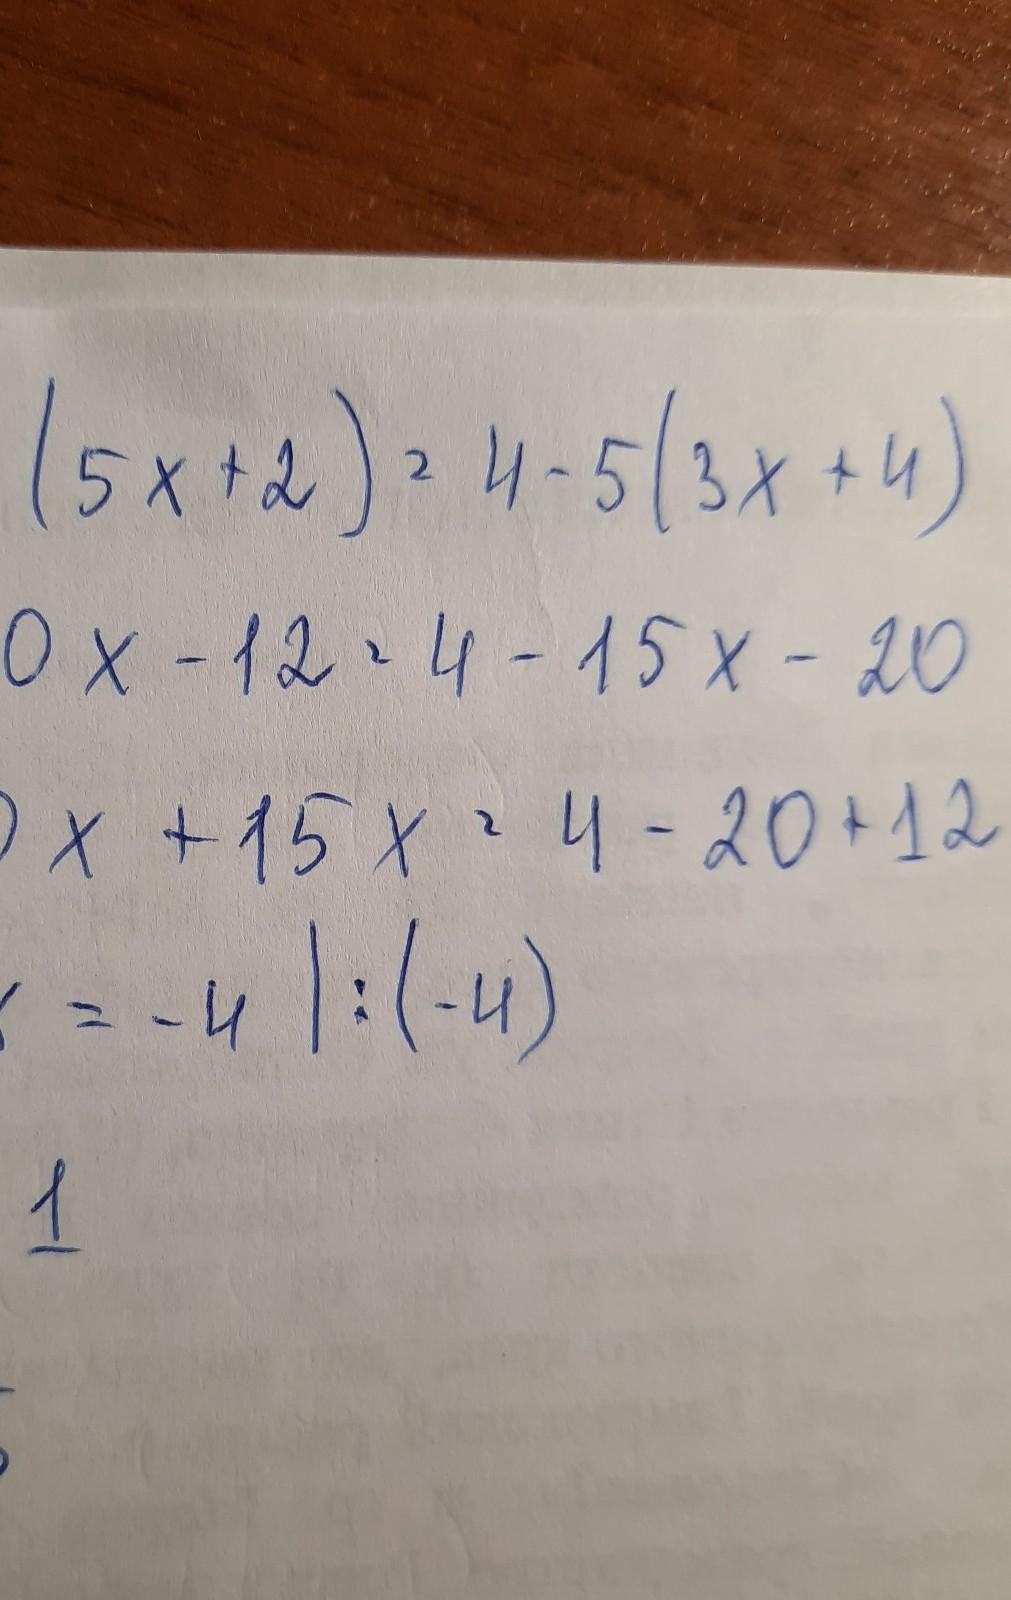 (5x+2)=4-5(3x+4)
0x-12=4-15x-20
x+15x=4-20+12
=-4|:(-4)
1